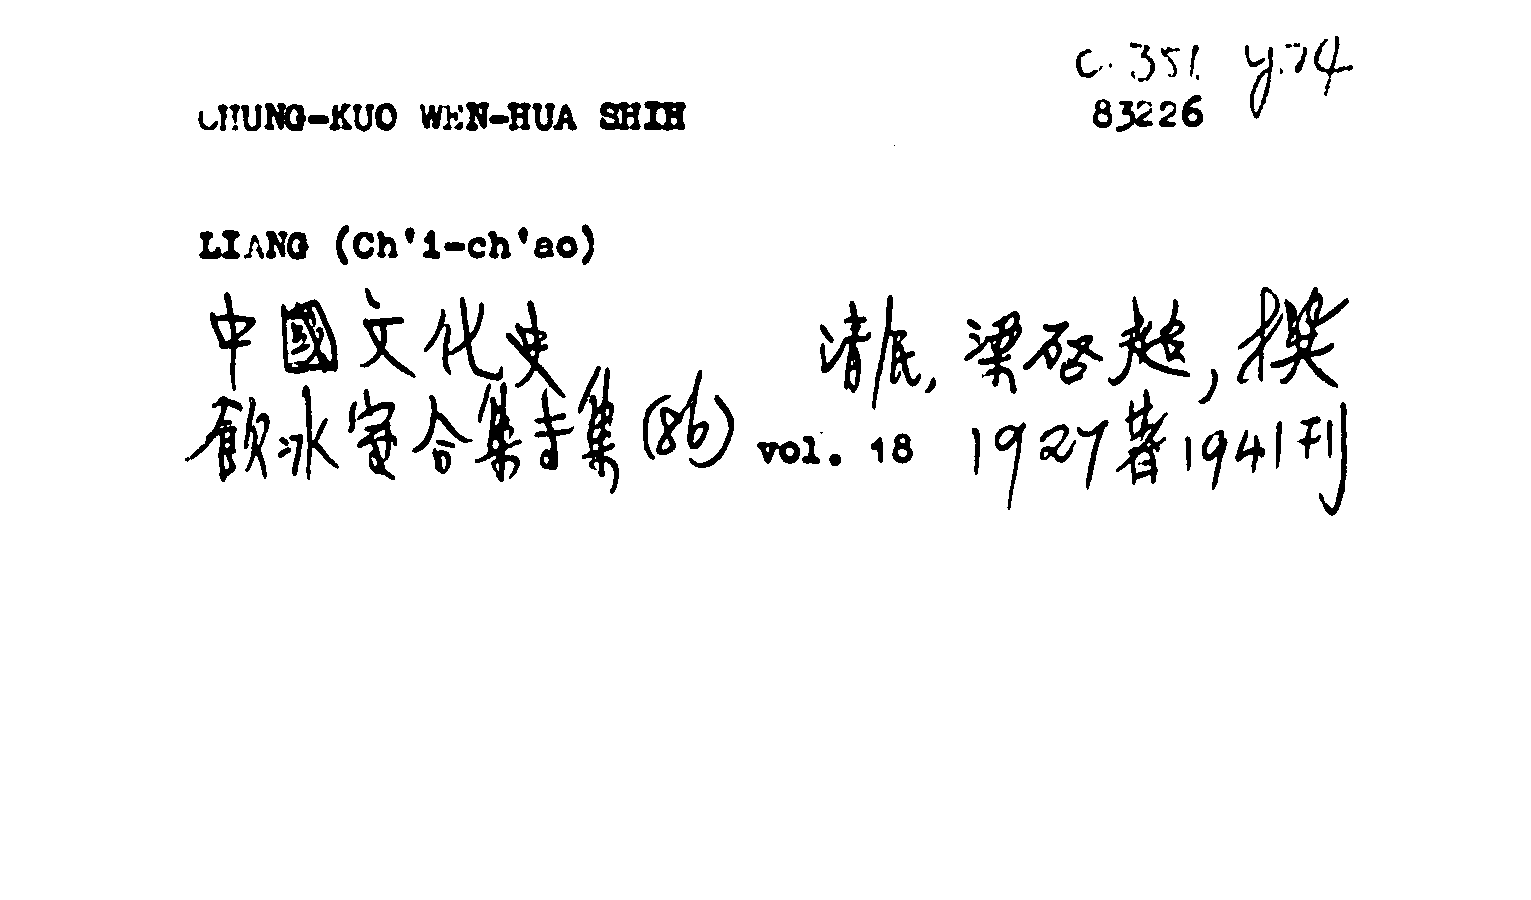 c. 351 y.74
CHUNG-KUO WEN-HUA SHIH 83226
LIANG (Ch'i-ch'ao)
中國文化史 清民, 梁啓超, 撰
飲冰室合集專集(86) vol. 18 1927著1941刊